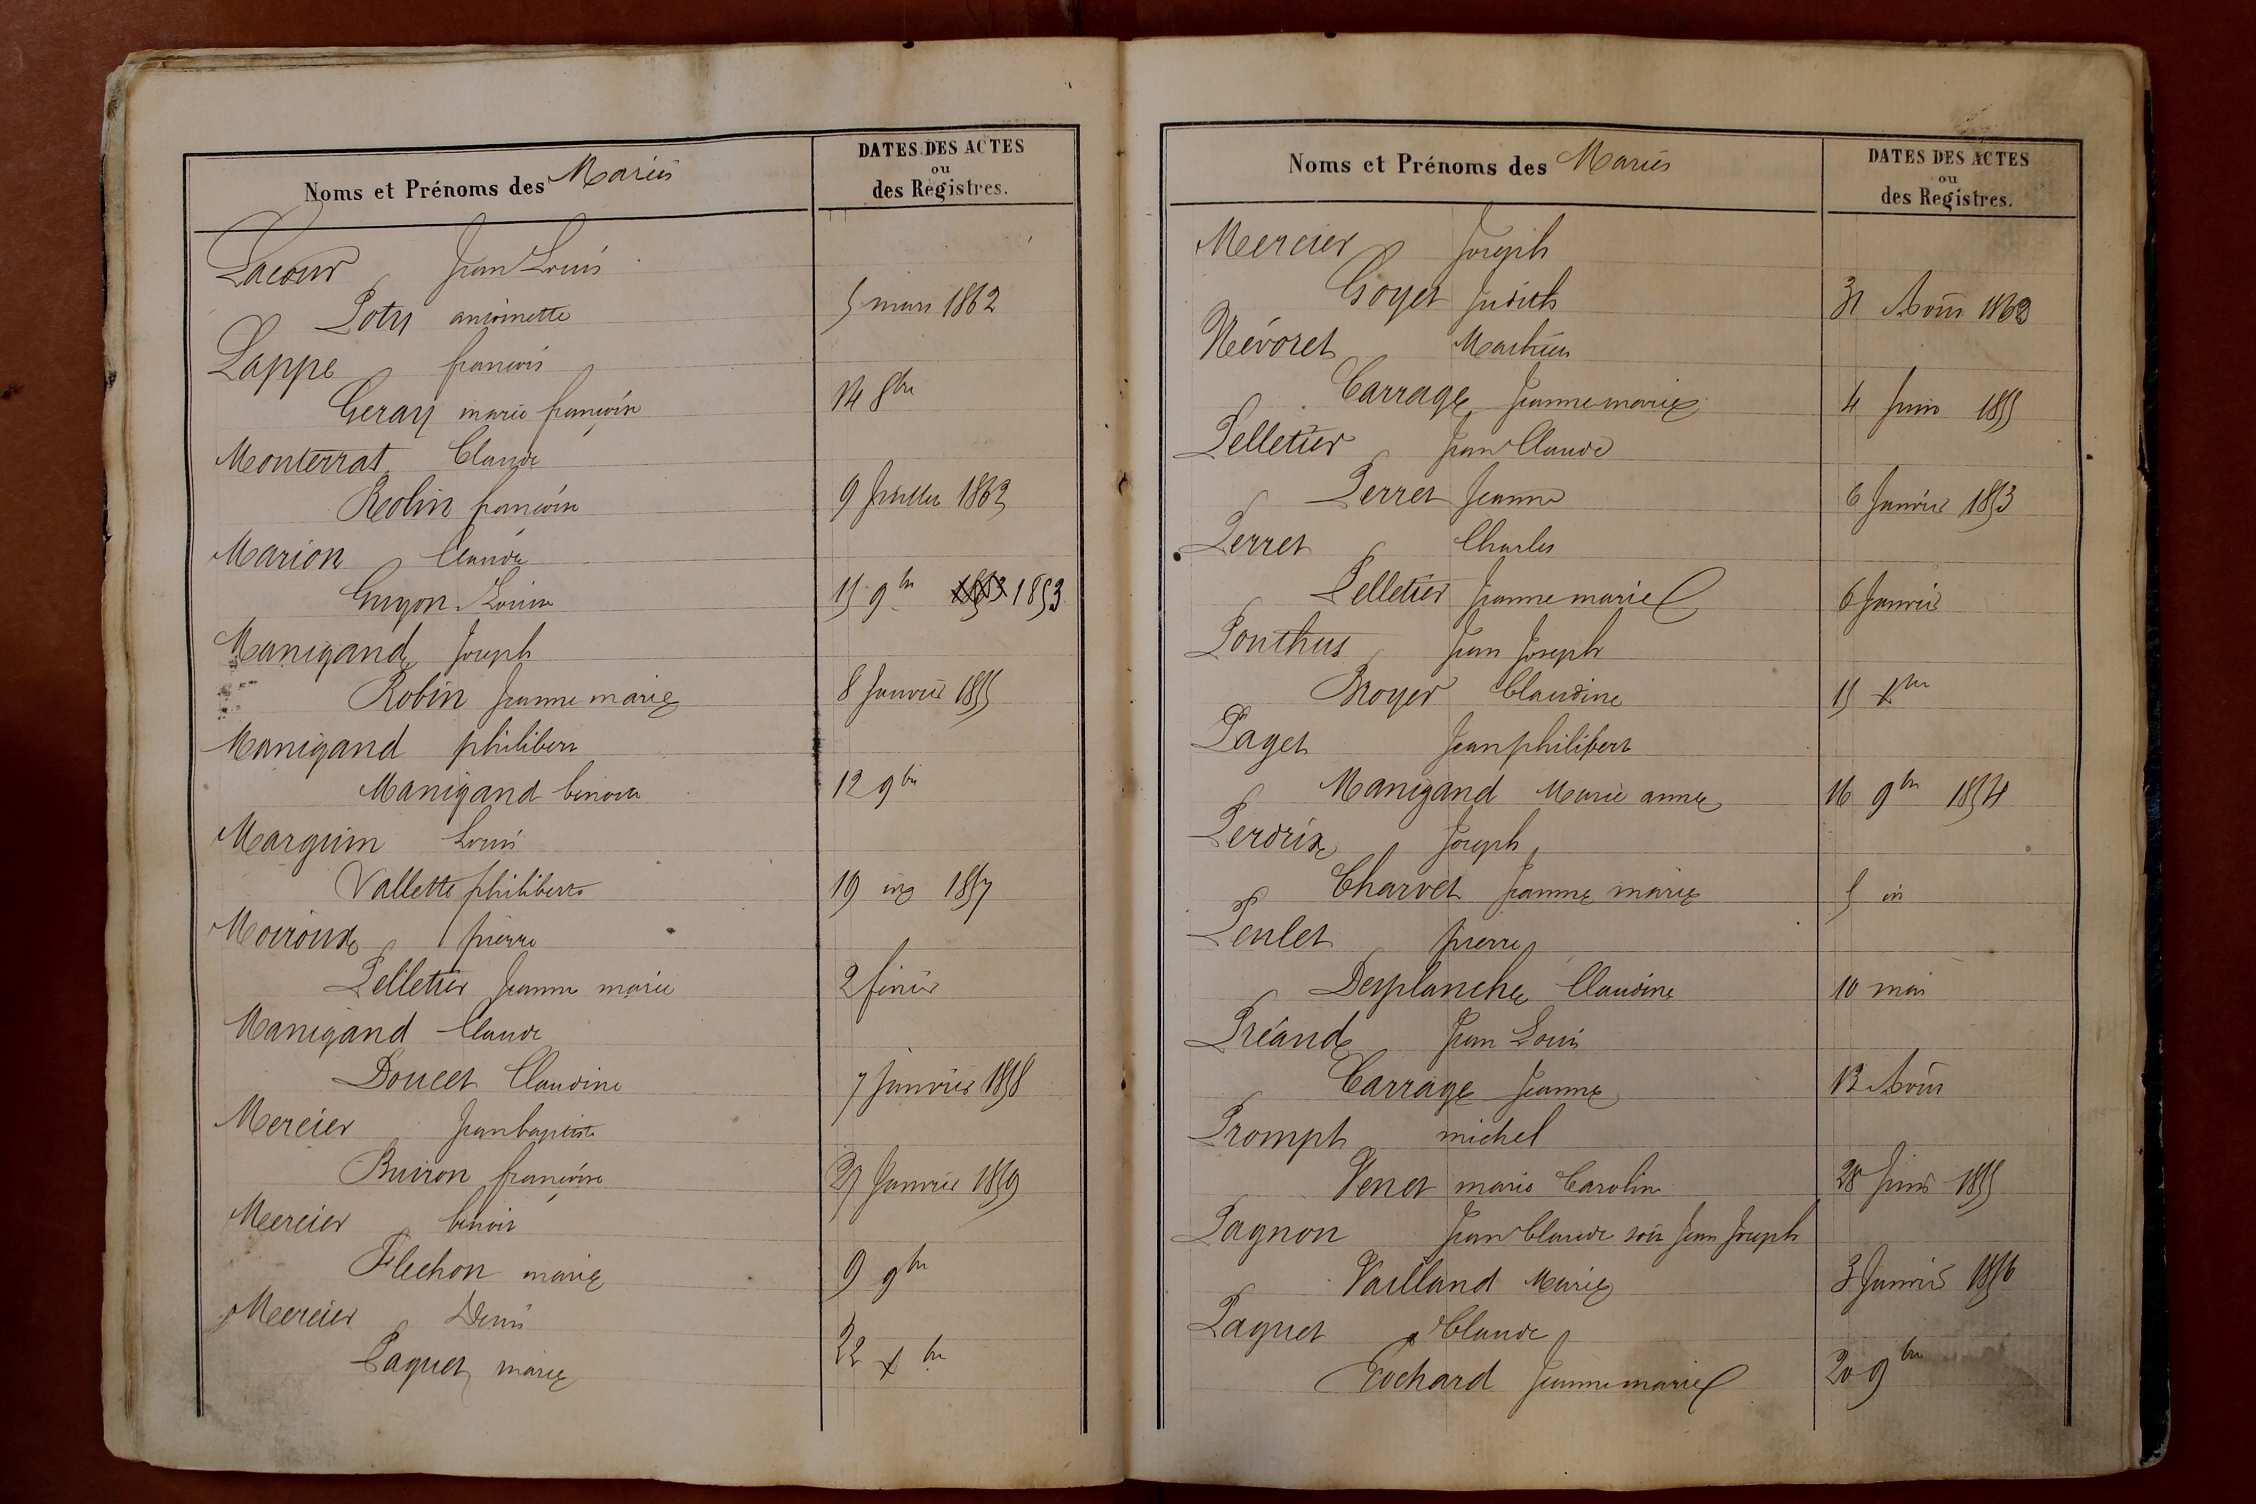 Noms et Prénoms des Mariés
DATES DES ACTES
ou
des Registres.
Lacour Jean Louis
Poty antoinette 5 mars 1862
Lappe françois
Geray marie françoise 14 8bre
Monterrat Claude
Robin françoise 9 Juillet 1863
Marion Claude
Guyon Louise 15 9bre 1853
Manigand Joseph
Robin Jeanne marie 8 Janvier 1855
Manigand philibert
Manigand benoite 12 9bre
Marguin Louis
Vallette philiberte 19 1857
Moiroux pierre
Pelletier Jeanne marie 2 février
Manigand Claude
Doucet Claudine 7 janvier 1858
Mercier Jean baptiste
Buiron françoise 27 Janvier 1859
Mercier benoit
Flechon marie 9 9bre
Mercier Denis
Paquet marie 22 xbre
Noms et Prénoms des Mariés
DATES DES ACTES
ou
des Registres.
Mercier Joseph
Goyet Judith 31 Août 1862
Névoret Mathieu
Carrage Jeanne marie 4 Juin 1855
Pelletier Jean Claude
Perret Jeanne 6 Janvier 1853
Perret Charles
Pelletier Jeanne marie 6 Janvier
Ponthus Jean Joseph
Broyer Claudine 15 xbre
Paget Jean philibert
Manigand Marie anne 16 9bre 1854
Perdrix Joseph
Charvet Jeanne marie 5 in
Penlet pierre
Desplanche Claudine 10 mai
Préand Jean Louis
Carrage Jeanne 13 Août
Prompt michel
Venet marie Caroline 28 Juin 1855
Pagnon Jean Claude soit Jean Joseph
Vailland Marie 3 Janvier 1856
Paquet Claude
Rochard Jeanne marie 20 9bre